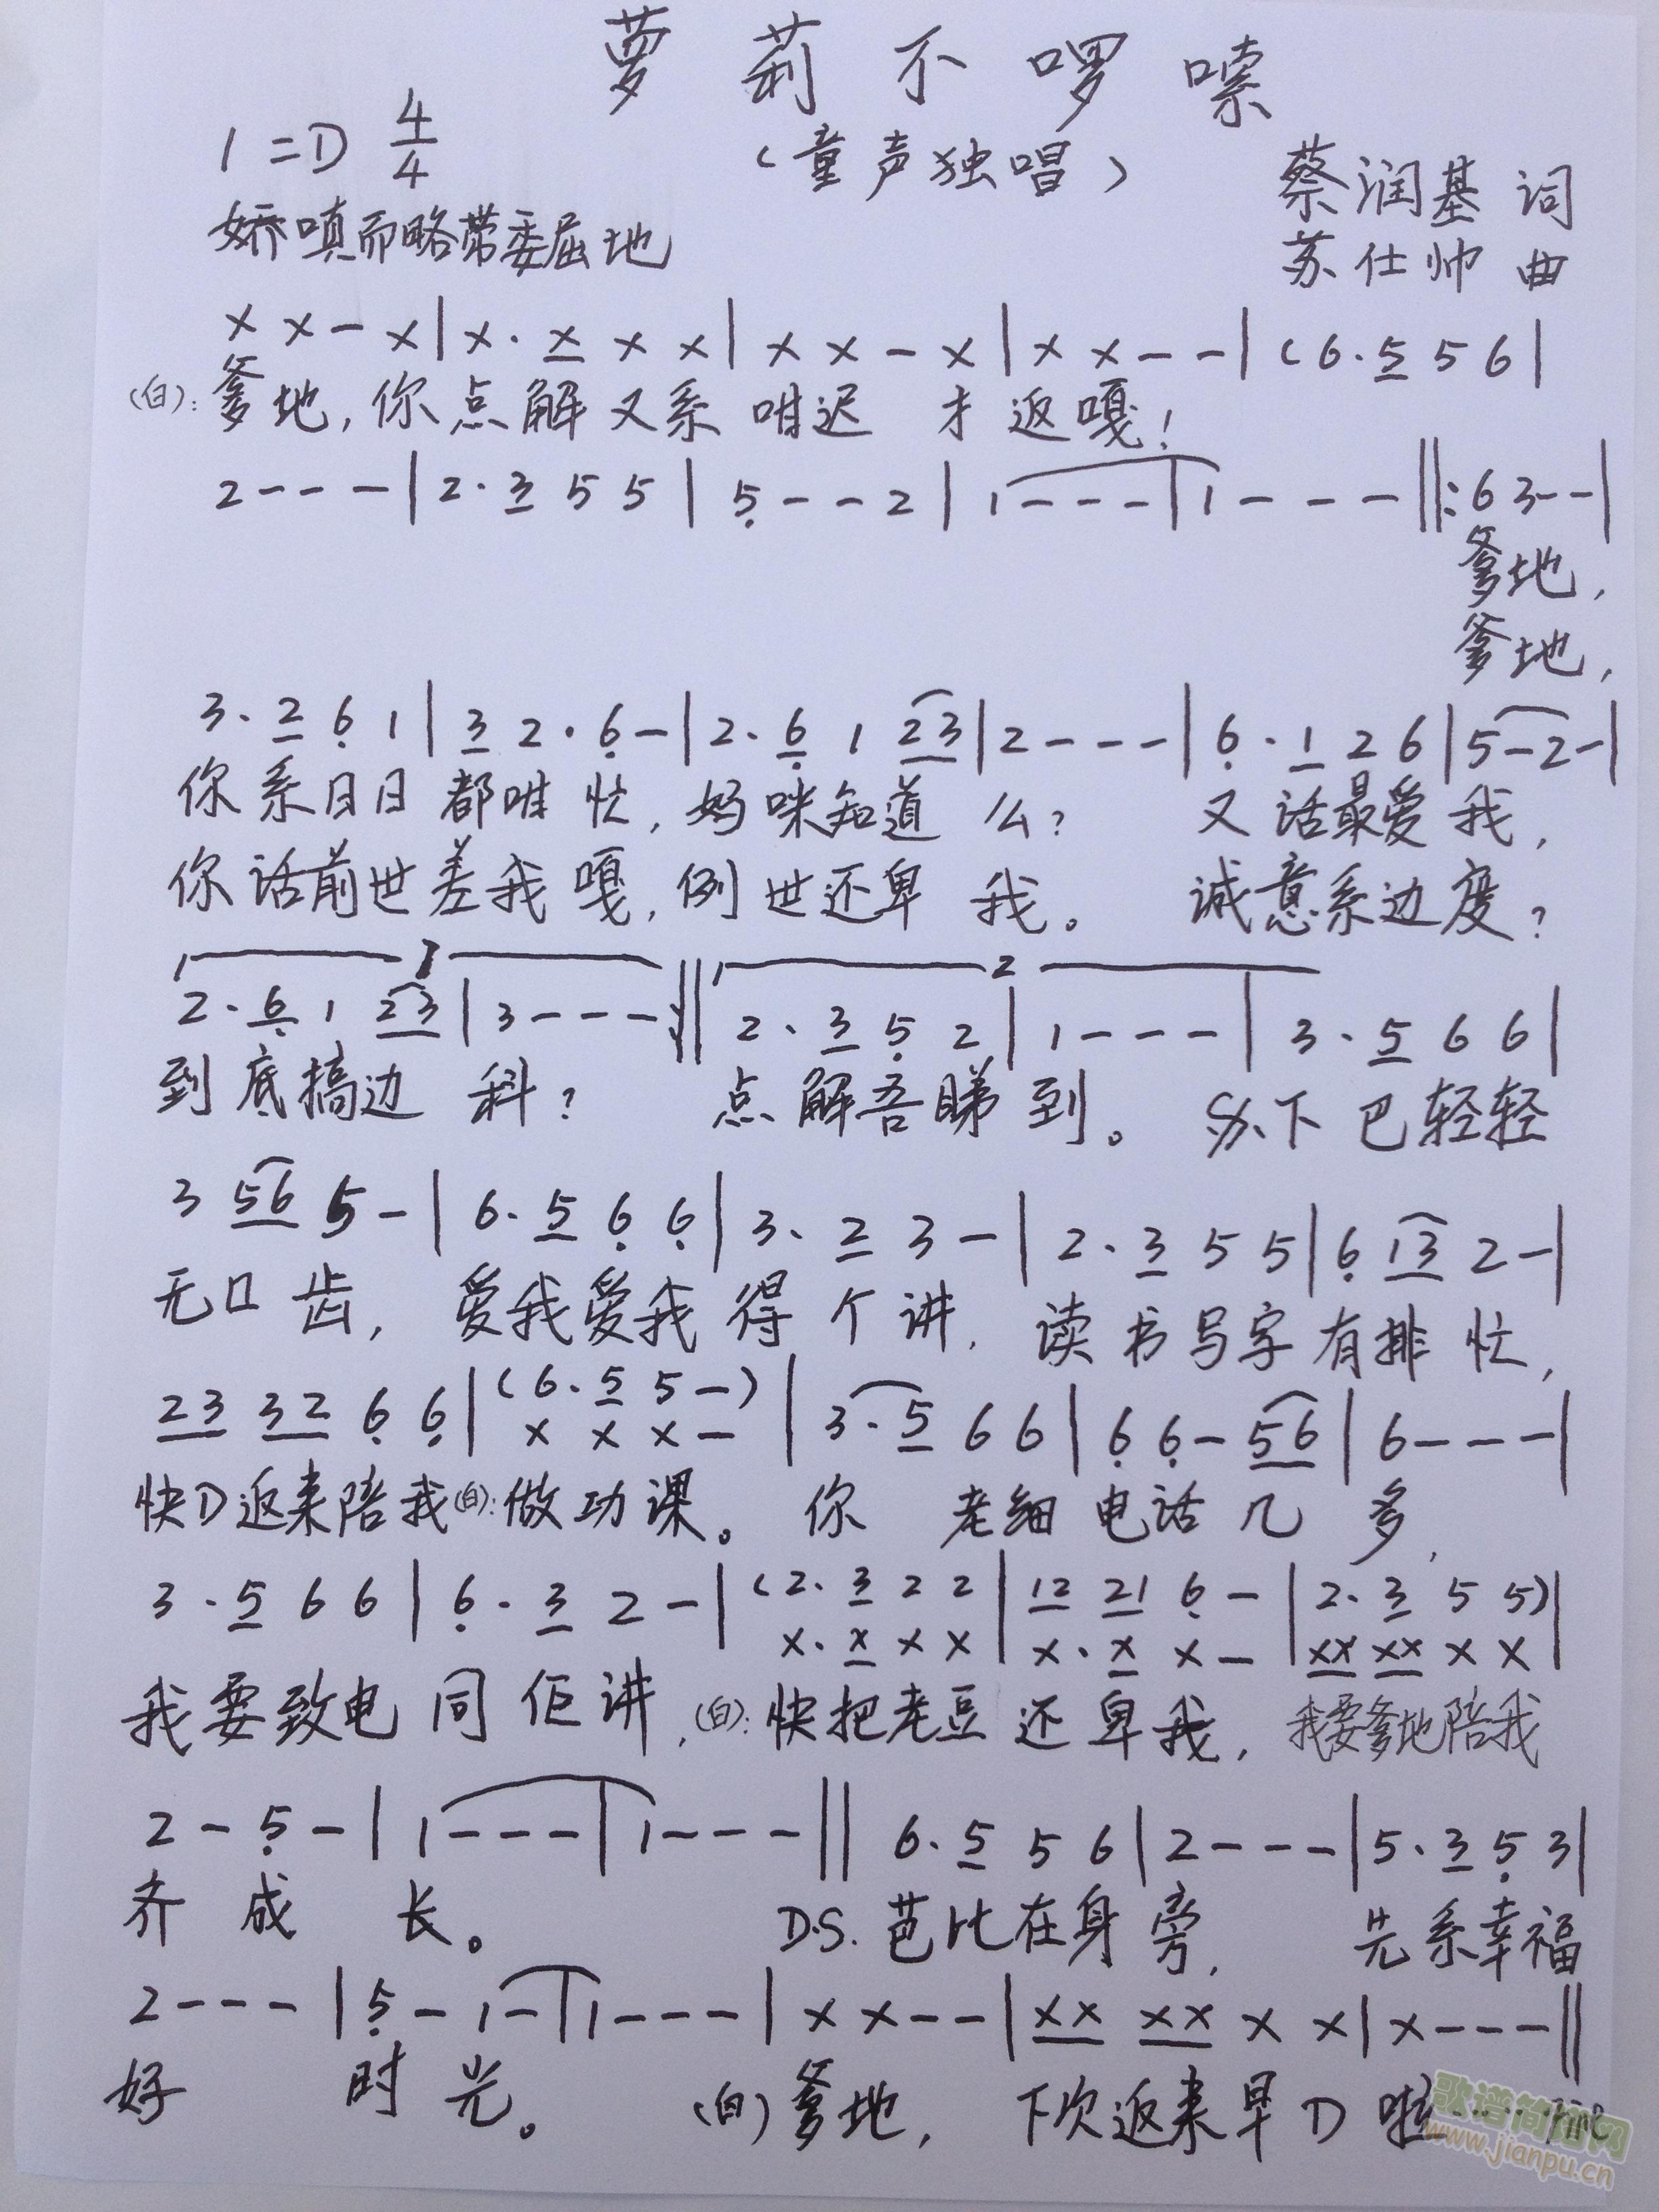 萝莉不啰嗦
1=D 4/4
（童声独唱）
蔡润基 词
娇嗔而略带委屈地
苏仕帅 曲
x x - x | x. x x x | x x - x | x x - - | (6. 5 5 6 |
(白): 爹地, 你点解又系咁迟 才返嘎!
2 - - - | 2. 3 5 5 | 5 - - 2 | 1 - - - | 1 - - - ‖: 6 3 - - |
爹地,
爹地,
3. 2 6 1 | 3 2. 6 - | 2. 6 1 23 | 2 - - - | 6. 1 2 6 | 5 - 2 - |
你系日日都咁忙, 妈咪知道么? 又话最爱我,
你话前世差我嘎, 例世还卑我。 诚意系边度?
1 2
2. 6 1 23 | 3 - - - :‖ 2. 3 5 2 | 1 - - - | 3. 5 6 6 |
到底搞边科? 点解吾睇到。 下巴轻轻
3 56 5 - | 6. 5 6 6 | 3. 2 3 - | 2. 3 5 5 | 6 13 2 - |
无口齿, 爱我爱我得个讲, 读书写字有排忙,
23 32 6 6 | (6. 5 5 -) | 3. 5 6 6 | 6 6 - 56 | 6 - - - |
x x x -
快D返来陪我(白): 做功课。 你老细电话几多,
3. 5 6 6 | 6. 3 2 - | (2. 3 2 2 | 12 21 6 - | 2. 3 5 5) |
x. x x x | x. x x - | xx xx x x |
我要致电同佢讲, (白): 快把老豆还卑我, 我要爹地陪我
2 - 5 - | 1 - - - | 1 - - - ‖ 6. 5 5 6 | 2 - - - | 5. 3 5 3 |
齐成长。 D.S. 芭比在身旁, 先系幸福
2 - - - | 5 - 1 - | 1 - - - | x x - - | xx xx x x | x - - - ‖
好时光。 (白) 爹地, 下次返来早D啦 Fine
歌谱简谱网
www.jianpu.cn